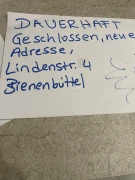 DAUERHAFT
Geschlossen, neue
Adresse,
Lindenstr. 4
Bienenbüttel